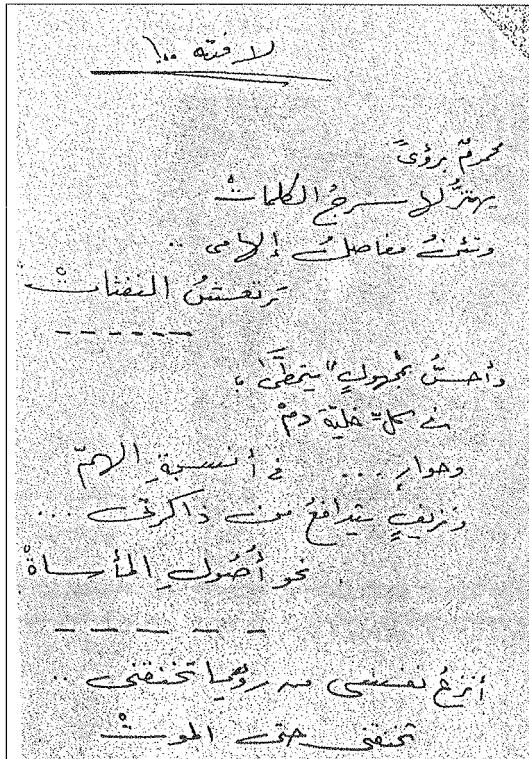 لا فته ..!
محمومٌ برؤىً
يهتزُّ لا سرجُ الكلماتْ
وتئنُّ مفاصلُ إلهامى ..
ترتعشُ النفثاتْ
------
وأحسُّ بمجهولٍ يتمطَّى ،
فى كلّ خليّة دمْ
وحوارٍ .... فى أنسجةِ الهمّ
ونزيفٍ يتدافعُ من ذاكرتى ...
نحو أصُولِ المأساةْ
------
أنزعُ نفسى من رؤيا تخنقنى ..
تخنقنى حتى الموتْ